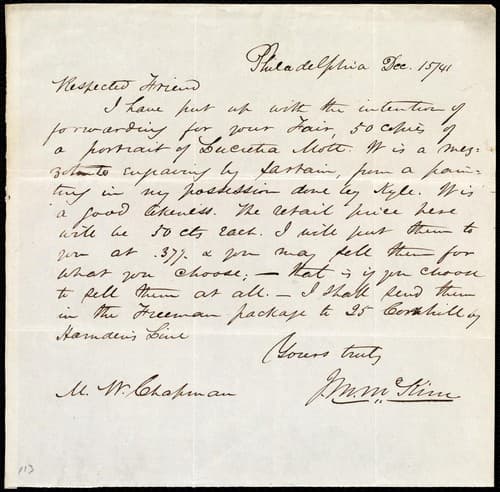 Philadelphia Dec. 15/41
Respected Friend
I have put up with the intention of
forwarding for your Fair, 50 copies of
a portrait of Lucretia Mott. It is a mez-
zotinto engraving by Sartain, from a pain-
ting in my possession done by Kyle. It is
a good likeness. The retail price here
will be 50 cts each. I will put them to
you at .37½ & you may sell them for
what you choose; — that is if you choose
to sell them at all. — I shall send them
in the Freeman package to 25 Cornhill by
Harnden's Line
Yours truly
M. W. Chapman
J. M. McKim
113